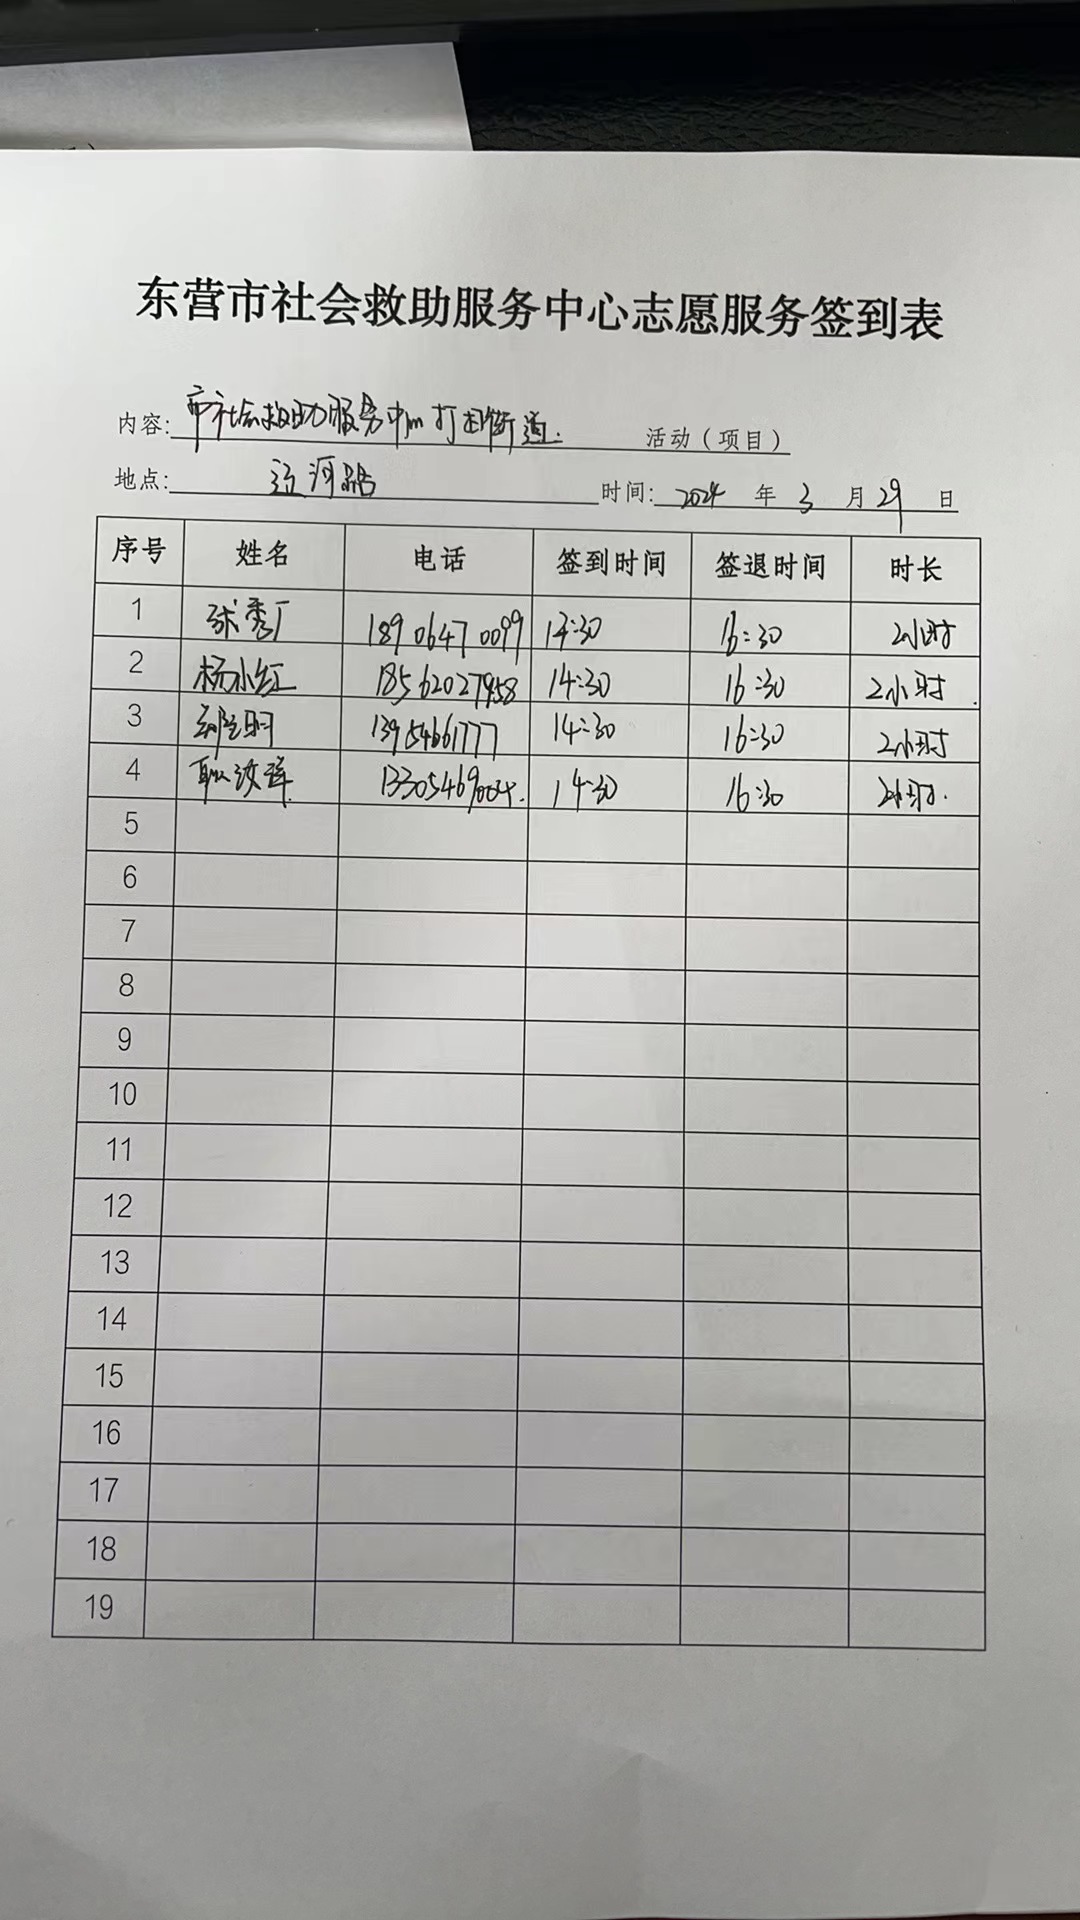 东营市社会救助服务中心志愿服务签到表
内容: 市社会救助服务中心打扫街道. 活动（项目）
地点: 辽河路 时间: 2024 年 3 月 29 日
序号 姓名 电话 签到时间 签退时间 时长
1 18906470099 14:30 16:30 2小时
2 杨小红 18562027958 14:30 16:30 2小时.
3 13954661777 14:30 16:30 2小时
4 13305469004. 14:30 16:30 2小时.
5
6
7
8
9
10
11
12
13
14
15
16
17
18
19